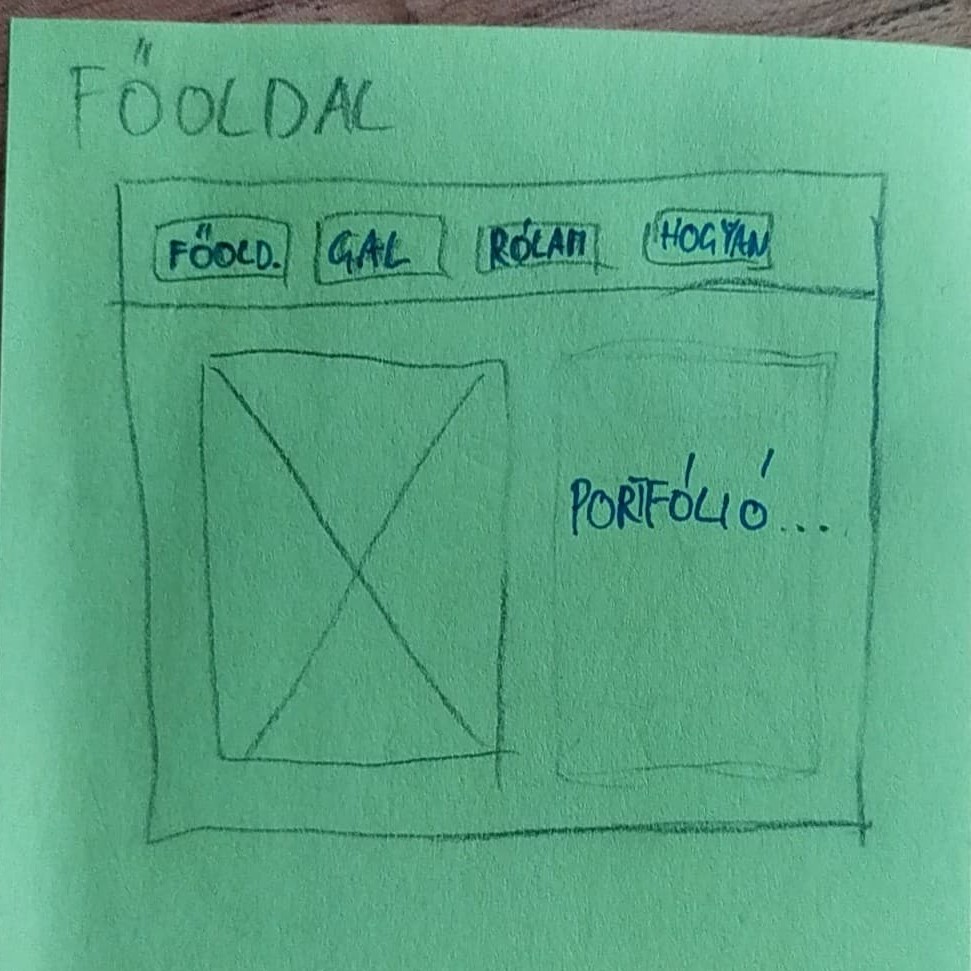 FŐOLDAL
FŐOLD. GAL RÓLAM HOGYAN
PORTFÓLIÓ...